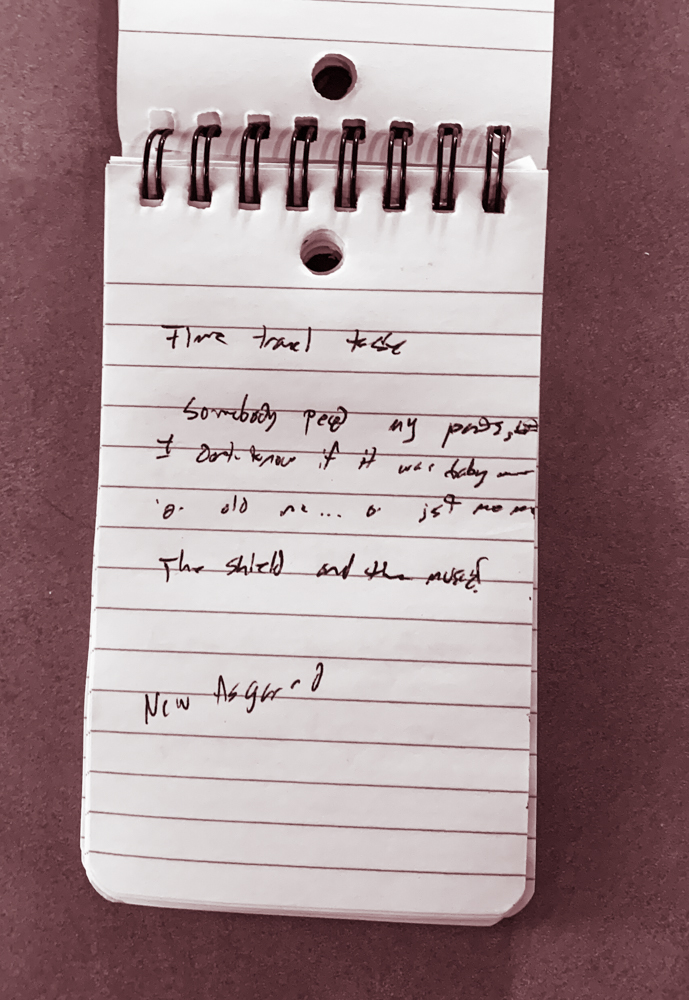 Time travel
Somebody peed my pants, but
I don't know if it was baby me
or old me... or just me me
The shield and the music
New Asgard